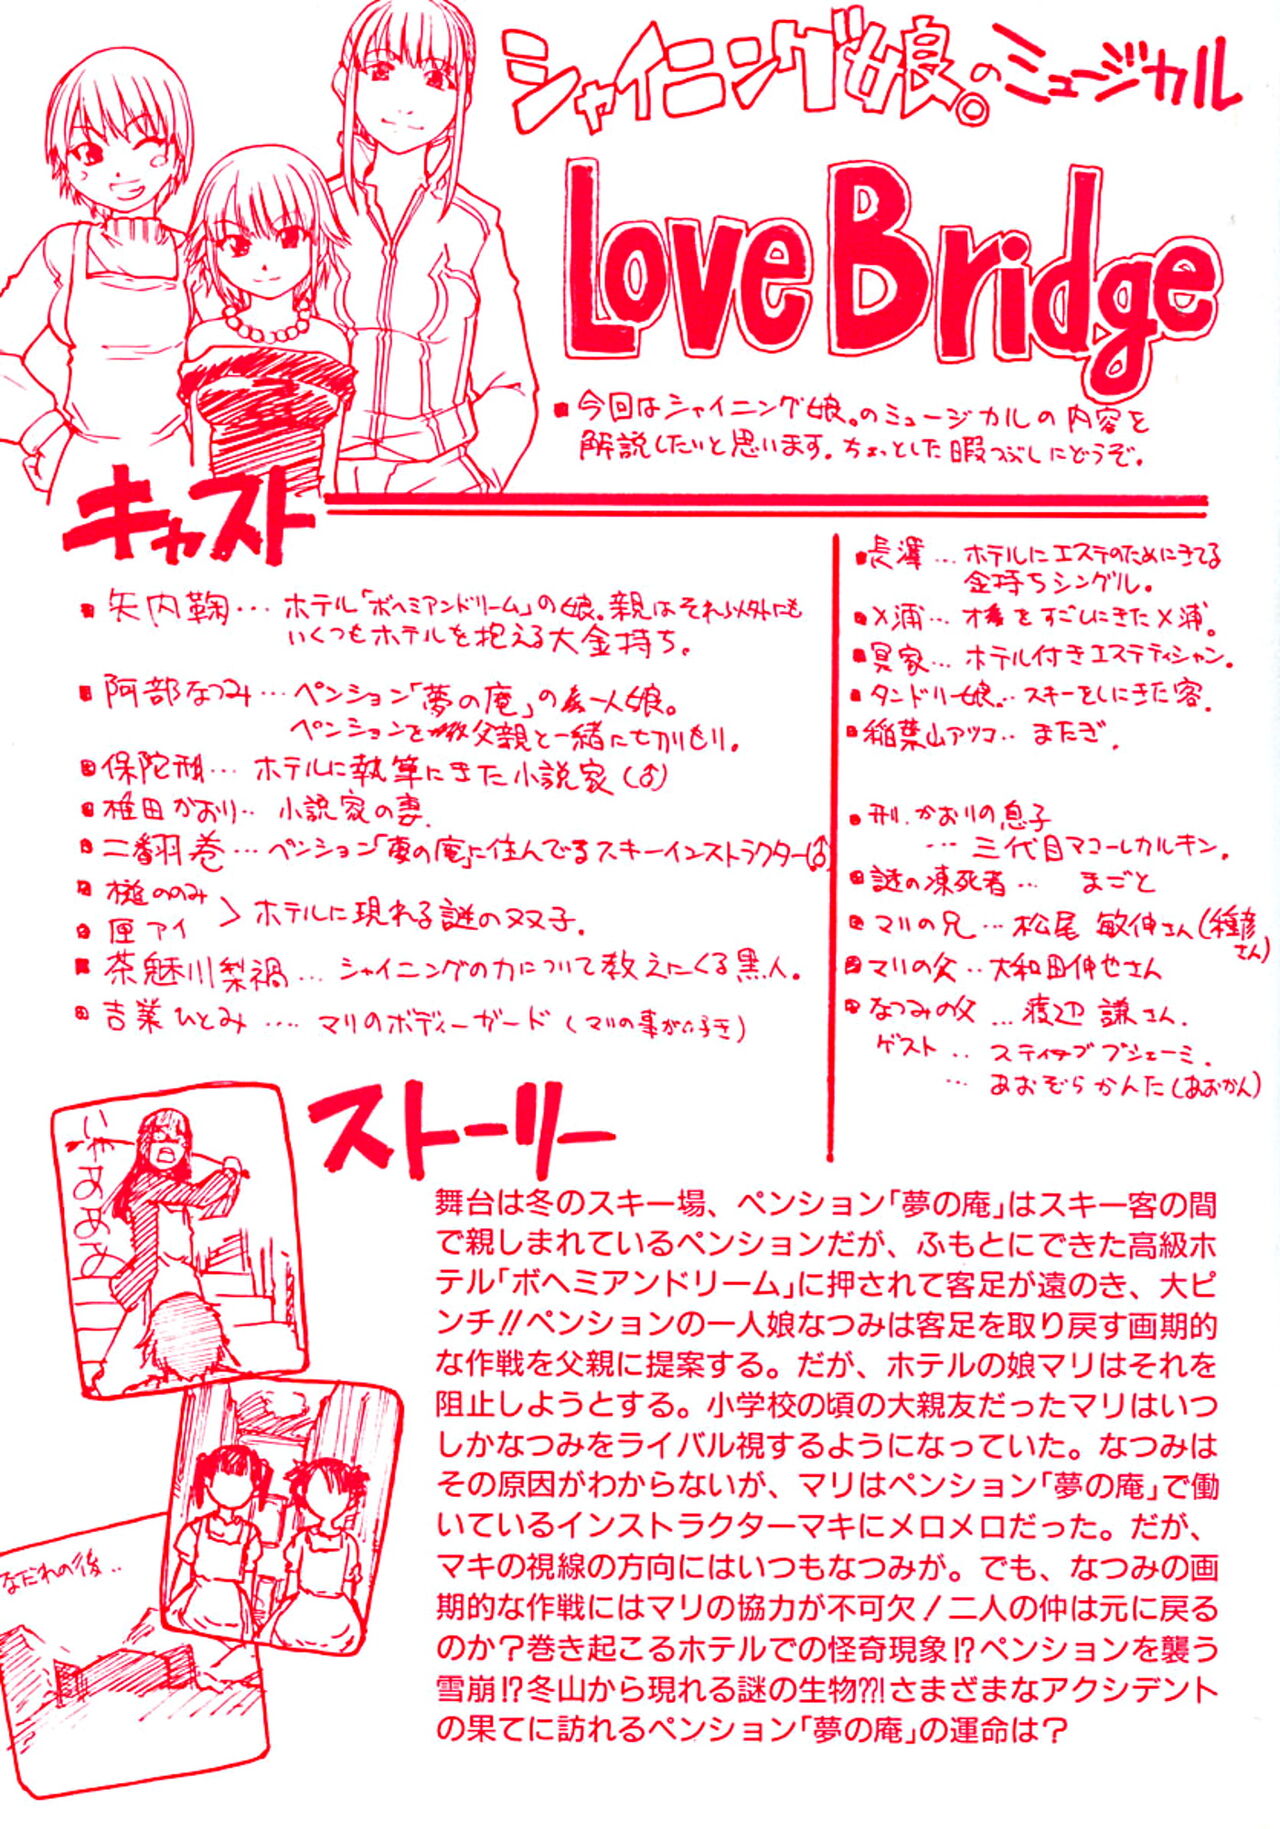 シャイニング娘。のミュージカル
Love Bridge
■今回はシャイニング娘。のミュージカルの内容を
解説したいと思います。ちょっとした暇つぶしにどうぞ。
キャスト
■矢内鞠…ホテル「ボヘミアンドリーム」の娘。親はそれ以外にも
いくつもホテルを抱える大金持ち。
■阿部なつみ…ペンション「夢の庵」の一人娘。
ペンションを父親と一緒に切りもり。
■保陀刑…ホテルに執筆にきた小説家(♂)
■椎田かおり‥小説家の妻.
■二翻巻…ペンション「夢の庵」に住んでるスキーインストラクター(♂)
■槌ののみ
■匣アイ
＞ホテルに現れる謎の双子.
■茶魅川梨禍…シャイニングの力について教えにくる黒人。
■吉業ひとみ‥‥マリのボディーガード(マリの事が好き)
■長澤…ホテルにエステのためにきてる
金持ちシングル。
■メ浦…オフをすごしにきたメ浦。
■冥家…ホテル付きエステティシャン。
■タンドリー娘…スキーをしにきた客.
■稲葉山アツコ‥またぎ.
■刑.かおりの息子
…三代目マコーレカルキン。
■謎の凍死者…まごと
■マリの兄…松尾敏伸さん(種彦さん)
■マリの父…大和田伸也さん
■なつみの父…渡辺謙さん.
ゲスト‥スティーブブシェーミ.
…あおぞらかんた(あおかん)
いやめめめ
なだれの後‥
ストーリー
舞台は冬のスキー場、ペンション「夢の庵」はスキー客の間
で親しまれているペンションだが、ふもとにできた高級ホ
テル「ボヘミアンドリーム」に押されて客足が遠のき、大ピ
ンチ!!ペンションの一人娘なつみは客足を取り戻す画期的
な作戦を父親に提案する。だが、ホテルの娘マリはそれを
阻止しようとする。小学校の頃の大親友だったマリはいつ
しかなつみをライバル視するようになっていた。なつみは
その原因がわからないが、マリはペンション「夢の庵」で働
いているインストラクターマキにメロメロだった。だが、
マキの視線の方向にはいつもなつみが。でも、なつみの画
期的な作戦にはマリの協力が不可欠！二人の仲は元に戻る
のか？巻き起こるホテルでの怪奇現象!?ペンションを襲う
雪崩!?冬山から現れる謎の生物??!さまざまなアクシデント
の果てに訪れるペンション「夢の庵」の運命は？